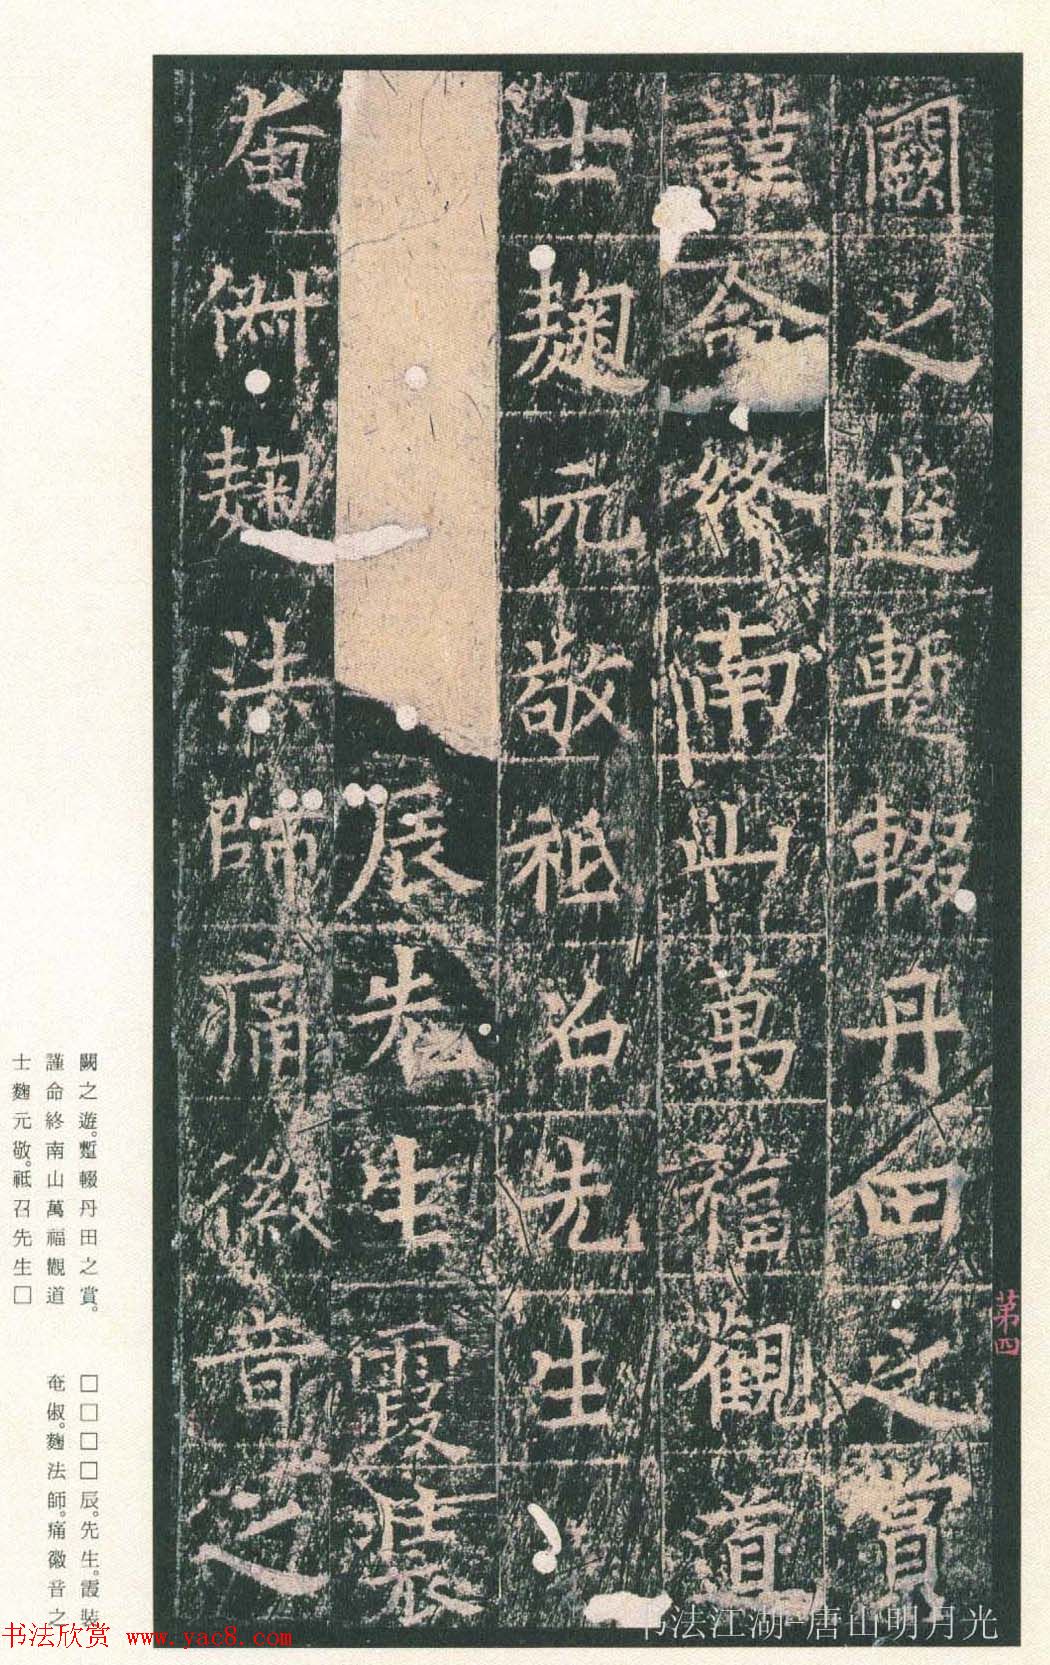 闕之遊暫輟丹田之賞
謹命終南山萬福觀道
士麴元敬祗召先生
辰先生霞裝
奄俶麴法師痛徽音之
第四
闕之遊。蹔輟丹田之賞。
謹命終南山萬福觀道
士麴元敬。祗召先生□
□□□□辰。先生。霞裝
奄俶。麴法師。痛徽音之
书法江湖-唐山明月光
书法欣赏 www.yac8.com